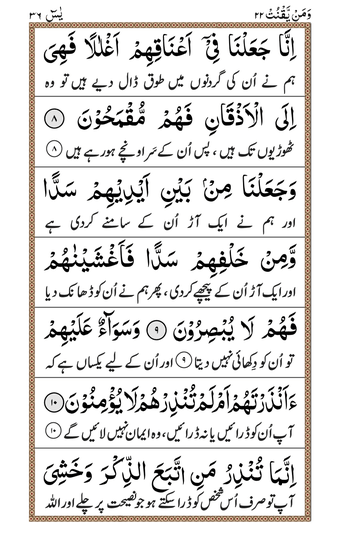 وَمَنْ يَّقْنُتْ ٢٢
يٰسٓ ٣٦
اِنَّا جَعَلْنَا فِیْۤ اَعْنَاقِهِمْ اَغْلٰلًا فَهِیَ
ہم نے اُن کی گردنوں میں طوق ڈال دیے ہیں تو وہ
اِلَی الْاَذْقَانِ فَهُمْ مُّقْمَحُوْنَ ۸
ٹھوڑیوں تک ہیں ، پس اُن کے سَر اونچے ہو رہے ہیں ۸
وَجَعَلْنَا مِنْۢ بَیْنِ اَیْدِیْهِمْ سَدًّا
اور ہم نے ایک آڑ اُن کے سامنے کردی ہے
وَّمِنْ خَلْفِهِمْ سَدًّا فَاَغْشَیْنٰهُمْ
اور ایک آڑ اُن کے پیچھے کردی ، پھر ہم نے اُن کو ڈھانک دیا
فَهُمْ لَا یُبْصِرُوْنَ ۹ وَسَوَآءٌ عَلَیْهِمْ
تو اُن کو دِکھائی نہیں دیتا ۹ اور اُن کے لیے یکساں ہے کہ
ءَاَنْذَرْتَهُمْ اَمْ لَمْ تُنْذِرْهُمْ لَا یُؤْمِنُوْنَ ۱۰
آپ اُن کو ڈرائیں یا نہ ڈرائیں، وہ ایمان نہیں لائیں گے ۱۰
اِنَّمَا تُنْذِرُ مَنِ اتَّبَعَ الذِّكْرَ وَخَشِیَ
آپ تو صرف اُس شخص کو ڈرا سکتے ہو جو نصیحت پر چلے اور اللہ